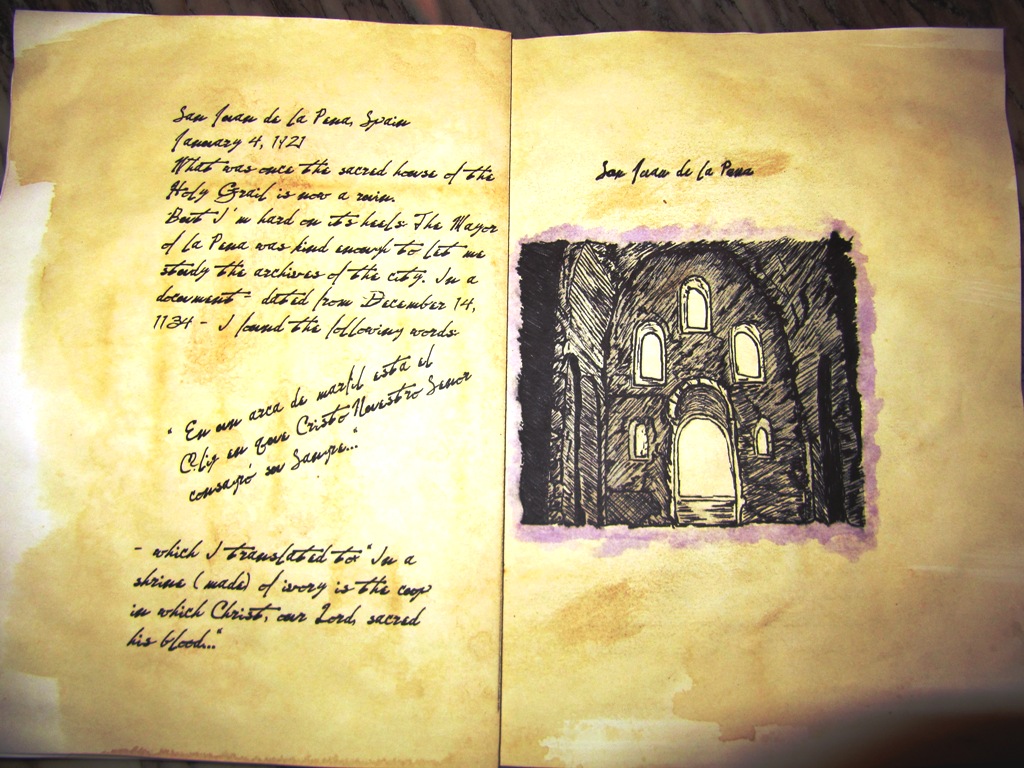 San Juan de la Pena, Spain
January 4, 1921
What was once the sacred house of the
Holy Grail is now a ruin.
But I'm hard on it's heels. The Mayor
of la Pena was kind enough to let me
study the archives of the city. In a
document - dated from December 14,
1134 - I found the following words:
"En un arca de marfil está el
Cáliz en que Cristo Nuestro Senor
consagró su Sangre..."
- which I translated to: "In a
shrine (made) of ivory is the cup
in which Christ, our Lord, sacred
his blood..."
San Juan de la Pena